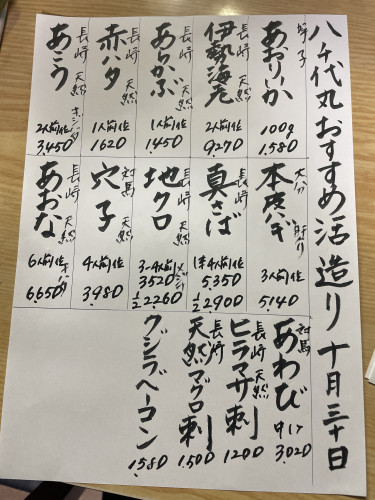 八千代丸おすすめ活造り 十月三十日
あおりーか
100g
1.580
長崎 天然
伊勢海老
2人前位
9.270
長崎 天然
あらかぶ
1人前位
1.450
長崎 天然
赤ハタ
1人前位
1620
長崎 天然
あこう
2人前位
3.450
大分 肝有り
本皮ハギ
3人前位
5.140
長崎 天然
真さば
1本4人前位
5.350
1/2 2.900
長崎 天然
地クロ
3~4人前位
3520
1/2 2260
対馬
穴子
4人前位
3.980
長崎 天然
あおな
6人前位
6.650
対馬
あわび
3.020
長崎 天然
ヒラマサ刺
1200
長崎
天然マグロ刺
1.500
クジラベーコン
1.580